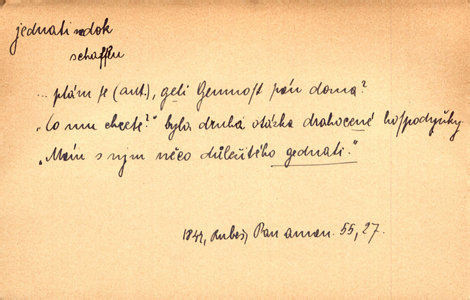 jednati ndok
schaffen
... ptám se (aut.), geli Gemnost pán doma?
„Co mu chcete?" byla druhá otázka drahocené hospodyňky.
„Mám s ným něco důležitého gednati."
1842, Rubeš, Pan aman. 55, 27.